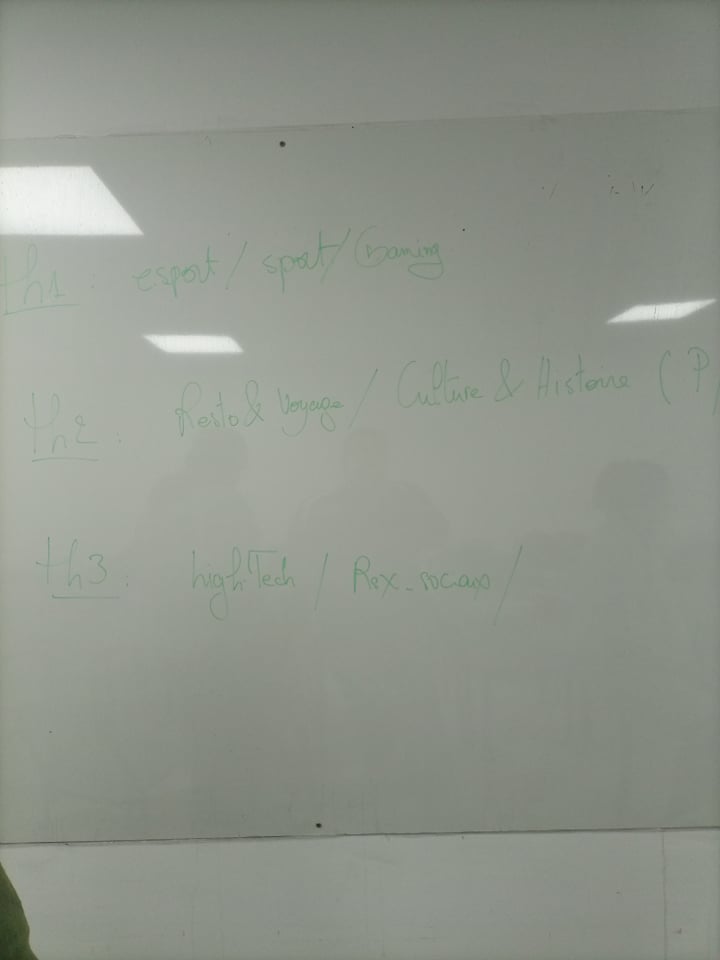 th1 : esport / sport / Gaming
th2 : Resto & Voyage / Culture & Histoire ( P
th3 : highTech / Rex-sociaux /